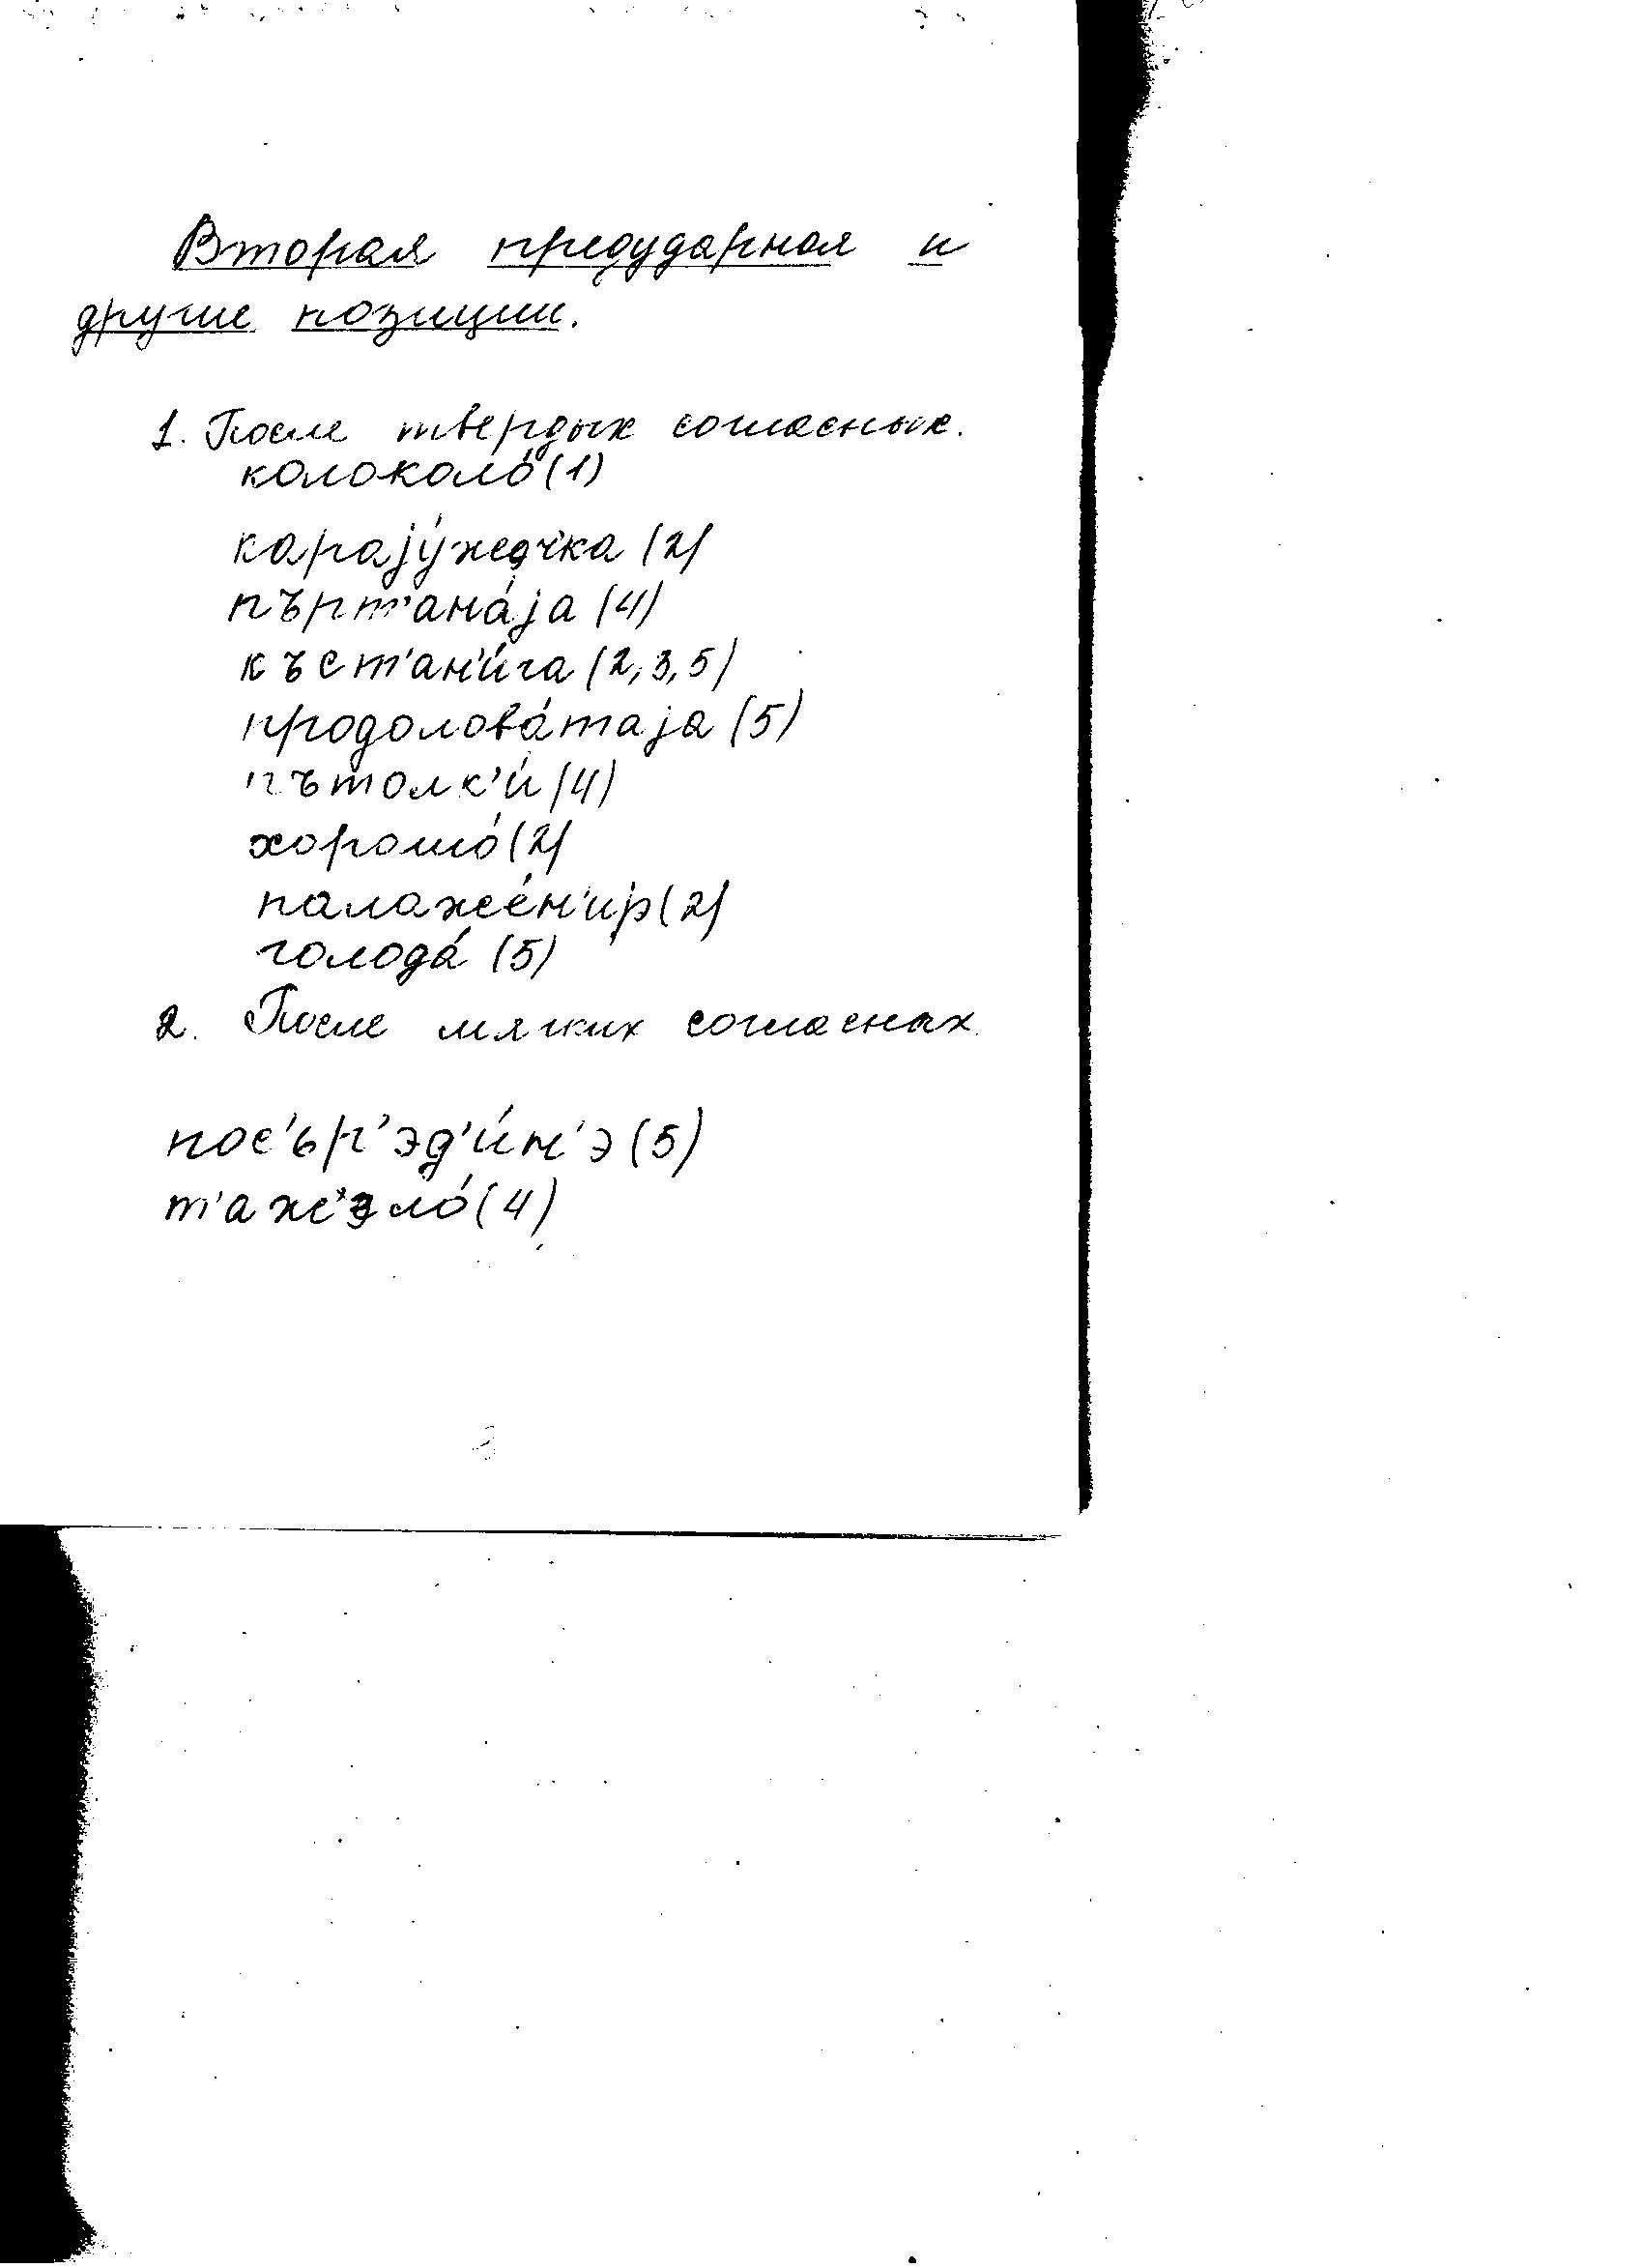 Вторая предударная и
другие позиции.
1. После твердых согласных.
колоколо́ (1)
карајýжедч'ка (2)
пърт'ана́ја (4)
къст'ан'и́га (2, 3, 5)
продолова́таја (5)
пътолк'и́ (4)
хорошо́ (2)
палажéн'иjэ (2)
голода́ (5)
2. После мягких согласных.
пос'ьр'эд'и́н'э (5)
т'аж'эло́ (4)